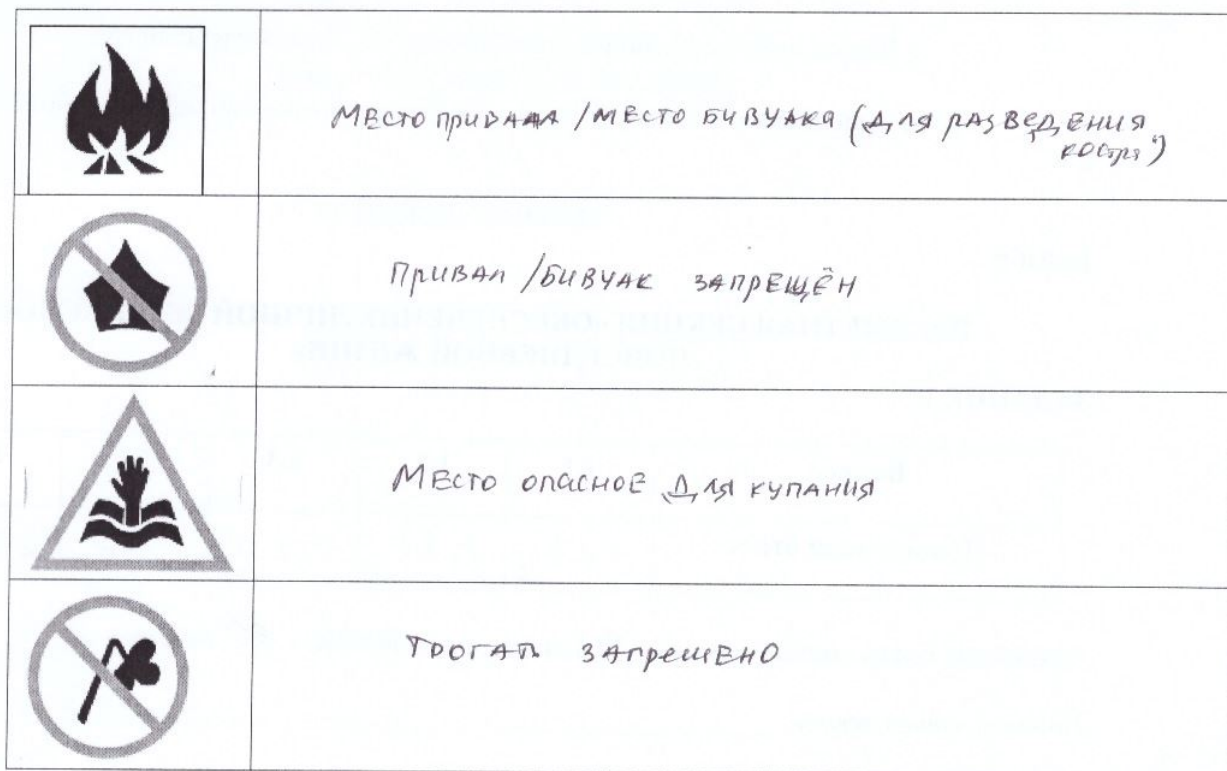 МЕСТО ПРИВАЛА / МЕСТО БИВУАКА (ДЛЯ РАЗВЕДЕНИЯ
КОСТРА)
ПРИВАЛ / БИВУАК ЗАПРЕЩЁН
МЕСТО ОПАСНОЕ ДЛЯ КУПАНИЯ
ТРОГАТЬ ЗАПРЕШЕНО